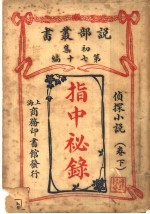 說部叢書
初集
第七十編
偵探小說
指中祕錄
(卷下)
上海商務印書館發行